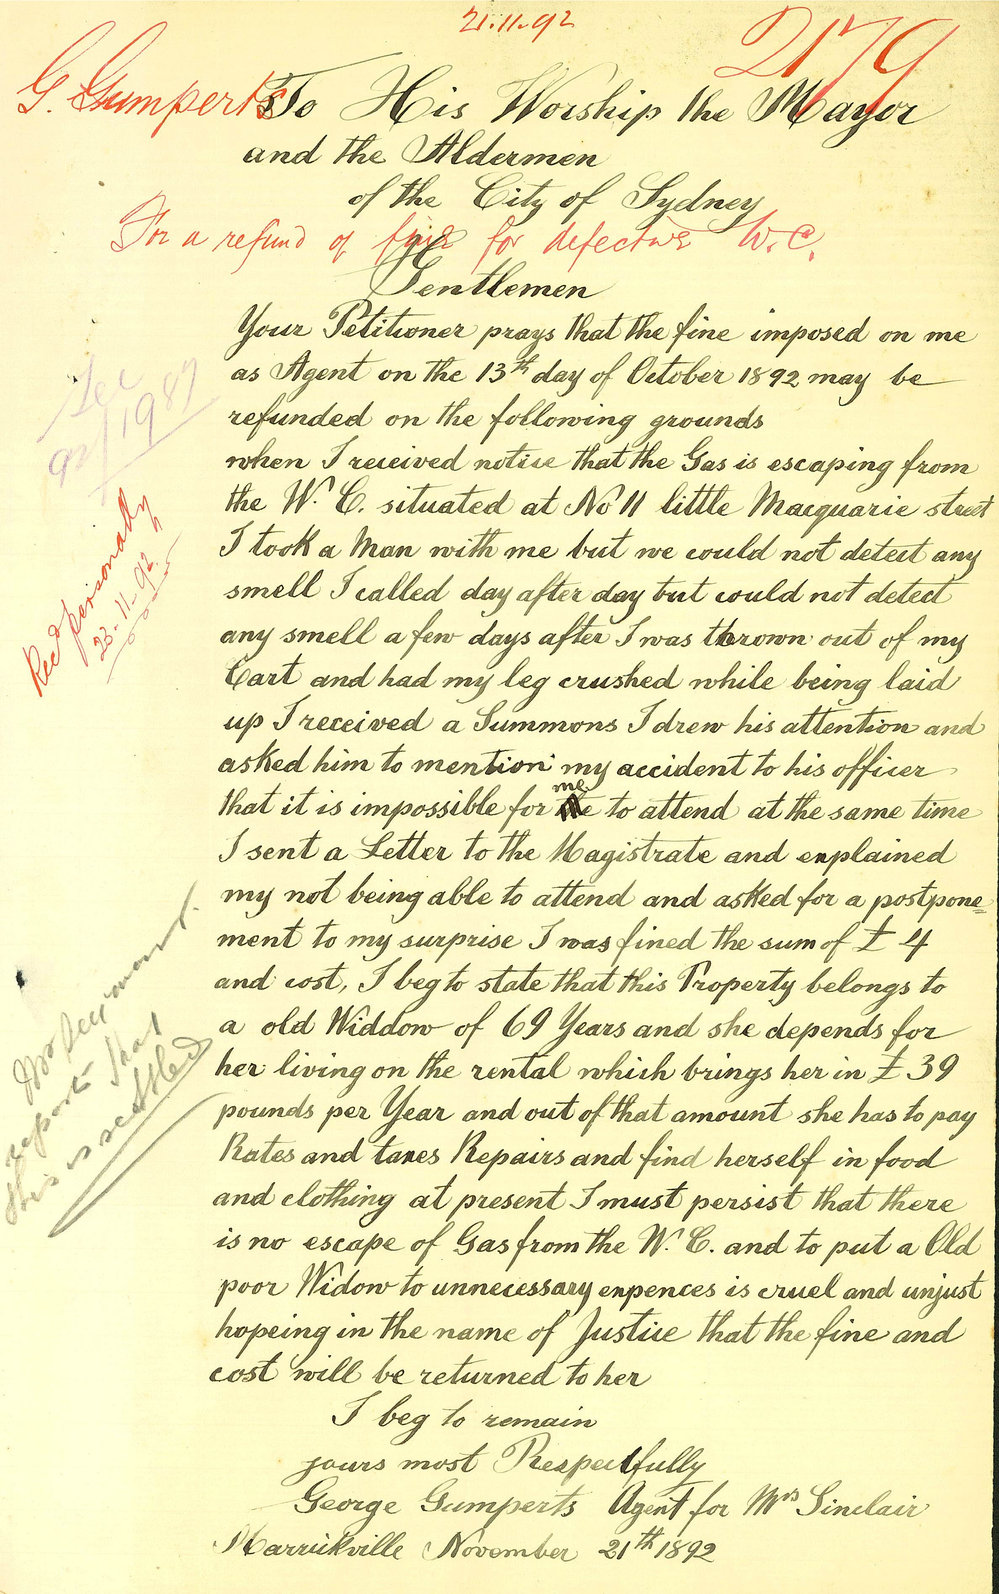 21.11.92
2179
G. Gumperts
To His Worship the Mayor
and the Aldermen
of the City of Sydney
For a refund of fine for defective W.C.
Gentlemen
Your Petitioner prays that the fine imposed on me
as Agent on the 13th day of October 1892 may be
refunded on the following grounds
when I received notice that the Gas is escaping from
the W. C. situated at No 11 little Macquarie street
I took a Man with me but we could not detect any
smell I called day after day but could not detect
any smell a few days after I was thrown out of my
Cart and had my leg crushed while being laid
up I received a Summons I drew his attention and
asked him to mention my accident to his officer
that it is impossible for me to attend at the same time
I sent a Letter to the Magistrate and explained
my not being able to attend and asked for a postpone=
ment to my surprise I was fined the sum of £ 4
and cost, I beg to state that this Property belongs to
a old Widdow of 69 Years and she depends for
her living on the rental which brings her in £ 39
pounds per Year and out of that amount she has to pay
Rates and taxes Repairs and find herself in food
and clothing at present I must persist that there
is no escape of Gas from the W. C. and to put a Old
poor Widow to unnecessary expences is cruel and unjust
hopeing in the name of Justice that the fine and
cost will be returned to her
I beg to remain
yours most Respectfully
George Gumperts Agent for Mrs Sinclair
Marrickville November 21th 1892
See
92/1987
Recd personally
23.11.92.
Mr Seymour
reports that
this is settled